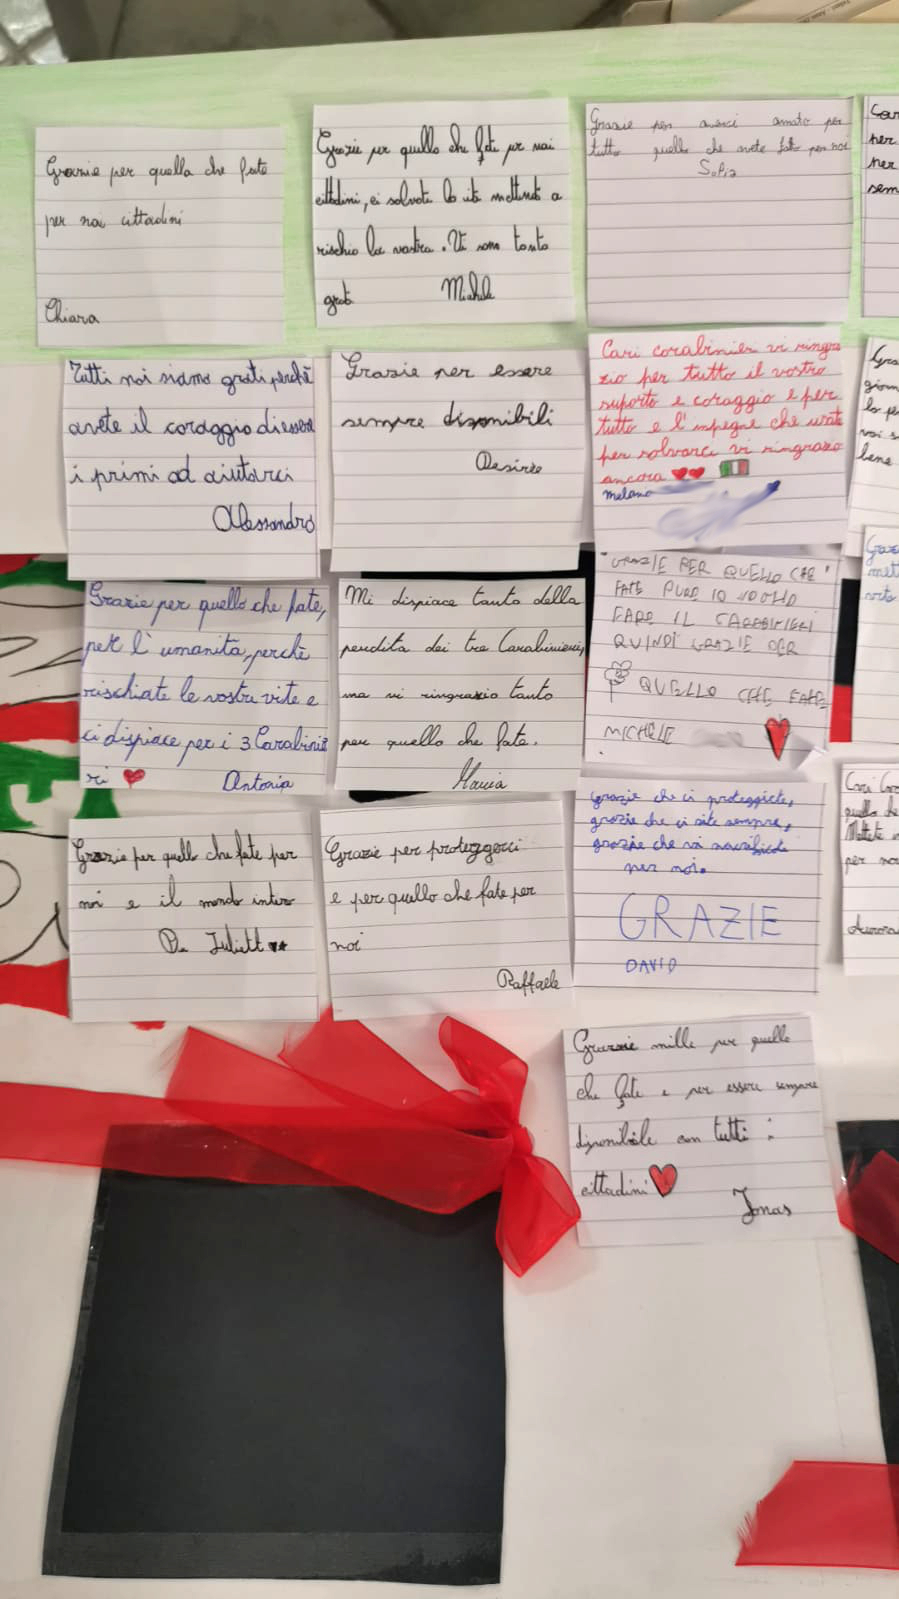 Grazie per quella che fate
per noi cittadini
Chiara
Grazie per quello che fate per noi
cittadini, ci salvate la vita mettendo a
rischio la vostra. Vi sono tanto
grat
Michele
Grazie per averci amato per
tutto quello che avete fatto per noi
Sofia
Car
per
per
sem
Tutti noi siamo grati perchè
avete il coraggio di essere
i primi ad aiutarci
Alessandro
Grazie per essere
sempre disponibili
Desirèe
Cari carabinieri vi ringra
zio per tutto il vostro
suporto e coraggio e per
tutto e l'impegne che usate
per salvarci vi ringrazio
ancora
melano
Gra
giorn
lo pe
voi s
bene
Grazie per quello che fate,
per l'umanita, perchè
rischiate le vostre vite e
ci dispiace per i 3 Carabinie
ri
Antonia
Mi dispiace tanto della
perdita dei tre Carabinieri,
ma vi ringrazio tanto
per quello che fate.
GRAZIE PER QUELLO CHE
FATE PURE IO VOGLIO
FARE IL CARABINIERI
QUINDI GRAZIE PER
QUELLO CHE FATE
MICHELE
Graz
mett
vorto
Grazie per quello che fate per
noi e il mondo intero
Da Juliett
Grazie per proteggerci
e per quello che fate per
noi
Raffaele
Grazie che ci proteggiete,
grazie che ci site sempre,
grazie che vi sacrificate
per noi.
GRAZIE
DAVID
Cari Car
quello che
Mettete
per no
Aurora
Grazie mille per quello
che fate e per essere sempre
disponibile con tutti i
cittadini
Jonas